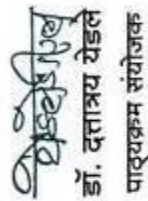 डॉ. दत्तात्रय येडले
पाठ्यक्रम संयोजक